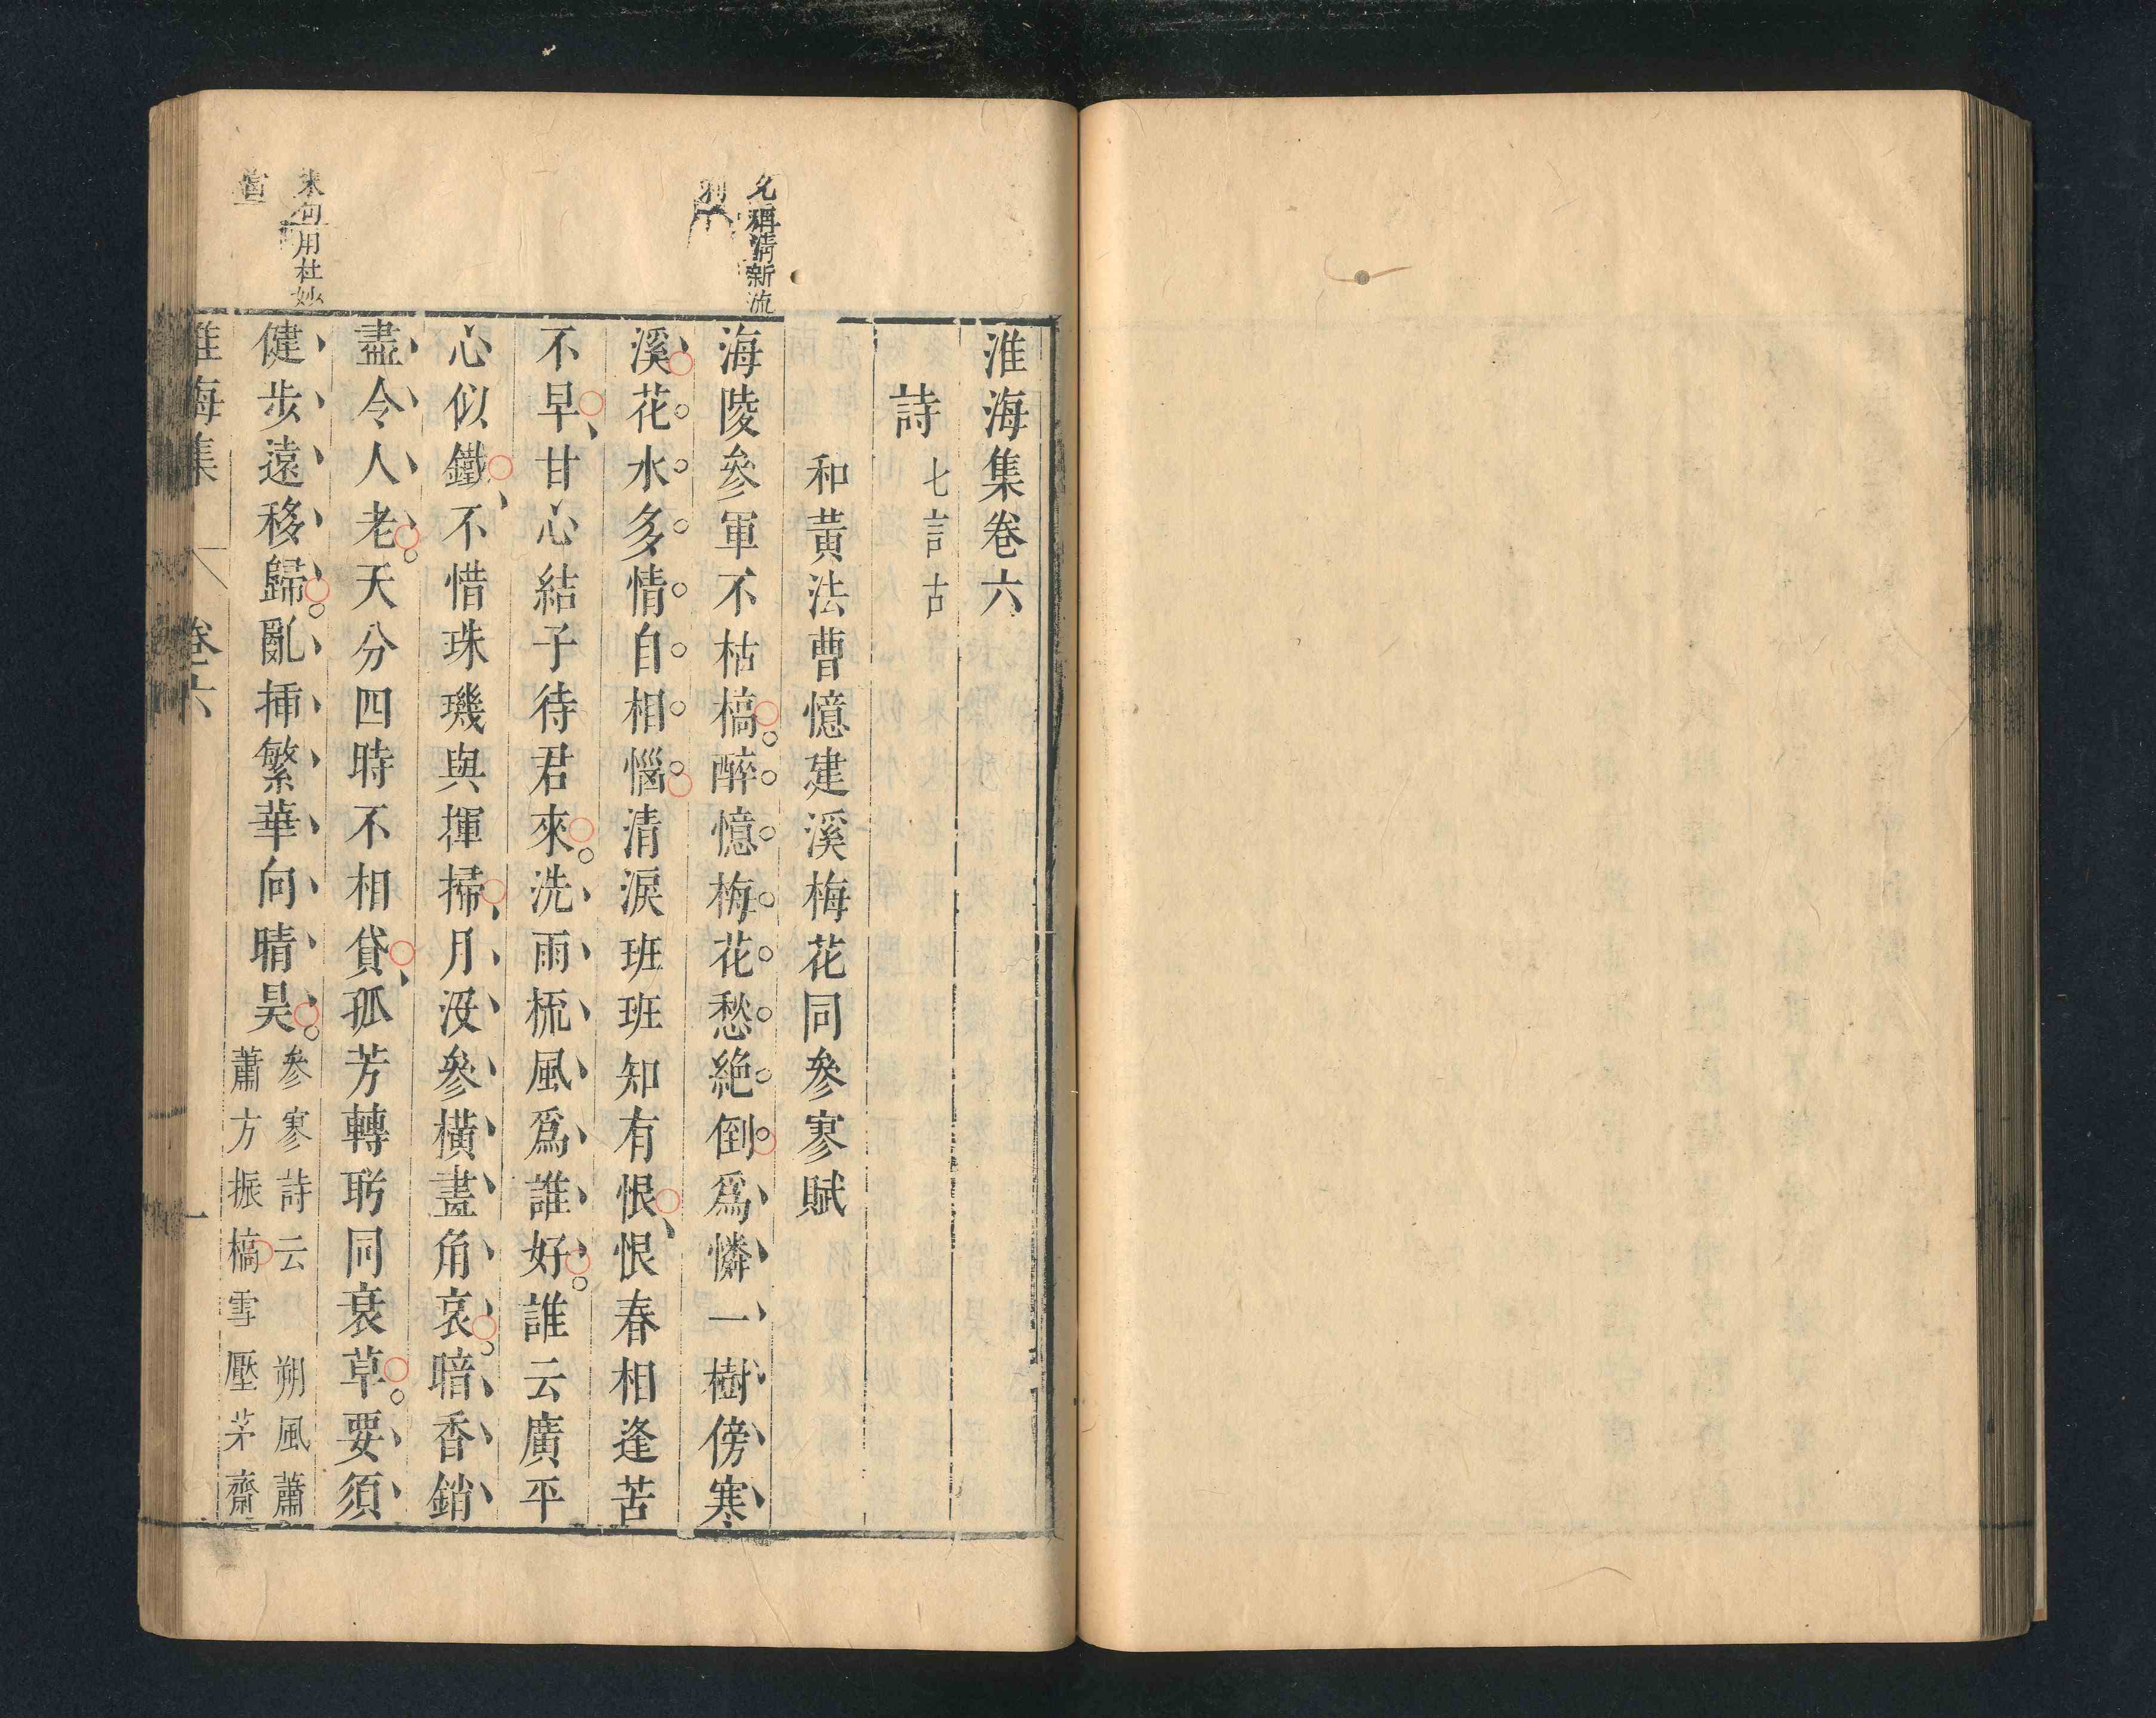 淮海集卷六
詩
七言古
和黃法曹憶建溪梅花同參寥賦
允稱清新流
利
海陵參軍不枯槁醉憶梅花愁絶倒爲憐一樹傍寒
溪花水多情自相惱清淚班班知有恨恨春相逢苦
不早甘心結子待君來洗雨梳風爲誰好誰云廣平
心似鐵不惜珠璣與揮掃月沒參橫畫角哀暗香銷
盡令人老天分四時不相貸孤芳轉盻同衰草要須
末句用杜妙
當
健步遠移歸亂揷繁華向晴昊
參寥詩云 朔風蕭
蕭方振槁雪壓茅齋
淮海集
卷六
一